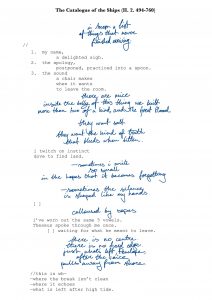 The Catalogue of the Ships (Il. 2, 494-760)
in heaven a list
of things that never
finished moving
//
1. my name,
a delighted sigh.
2. the apology,
postponed, practiced into a spoon.
3. the sound
a chair makes
when it wants
to leave the room.
there are mice
inside the belly of this thing we built
more than two of a kind, and the first flood.
they want salt
they want the kind of truth
that bleeds when bitten.
i twitch on instinct
dove to find land,
—sometimes i write
too small
in the hopes that it becomes forgetting
—sometimes the silence
is shaped like my hands
[ ]
collarbone by vespers
i've worn out the same 5 vowels.
Theseus spoke through me once.
[ ] waiting for what he meant to leave.
there is no centre
there is no first door
just what's left
after the voice
pulls away from shore
//this is wh—
-where the break isn't clean
-where it echoes
-what is left after high tide.